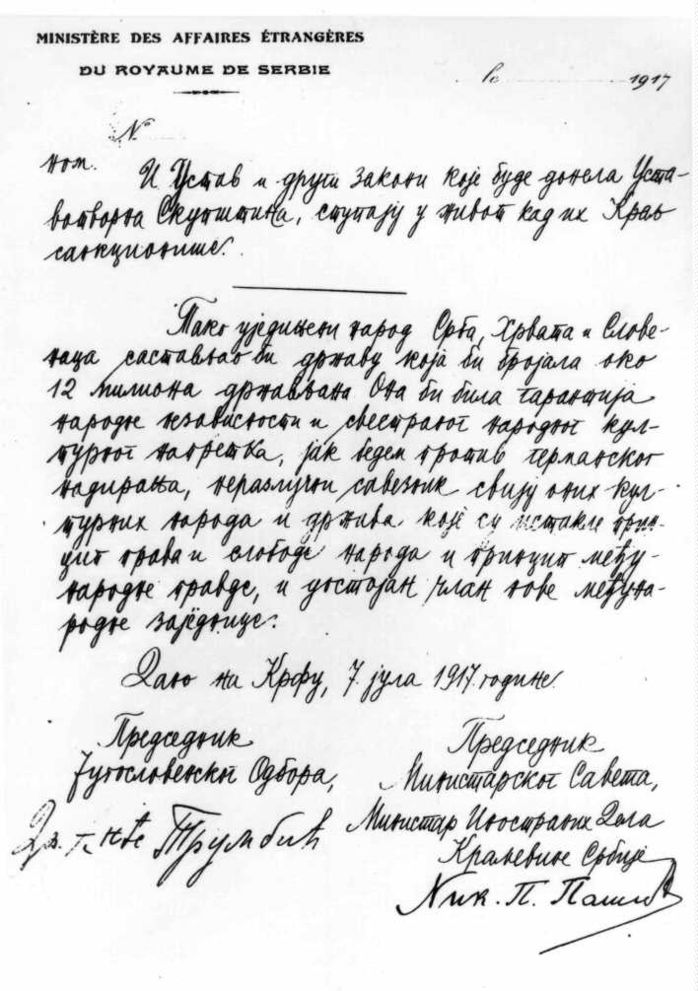 MINISTÈRE DES AFFAIRES ÉTRANGÈRES
DU ROYAUME DE SERBIE
le 1917
N°
ном. И Устав и други закони које буде донела Уста-
вотворна Скупштина, ступају у живот кад их Краљ
санкционише.
Тако уједињени народ Срба, Хрвата и Слове-
наца састављао би државу која би бројала око
12 милиона држављана Она би била гарантија
народне независности и свестраног народног кул-
турног напретка, јак бедем против германског
надирања, неразлучни савезник свију оних кул-
турних народа и држава које су истакле прин-
цип права и слободе народа и принцип међу-
народне правде, и достојан члан нове међуна-
родне заједнице.
Дано на Крфу, 7. јула 1917. године.
Председник
Југословенског Одбора,
Др. Трумбић
Председник
Министарског Савета,
Министар Иностраних Дела
Краљевине Србије
Ник. П. Пашић